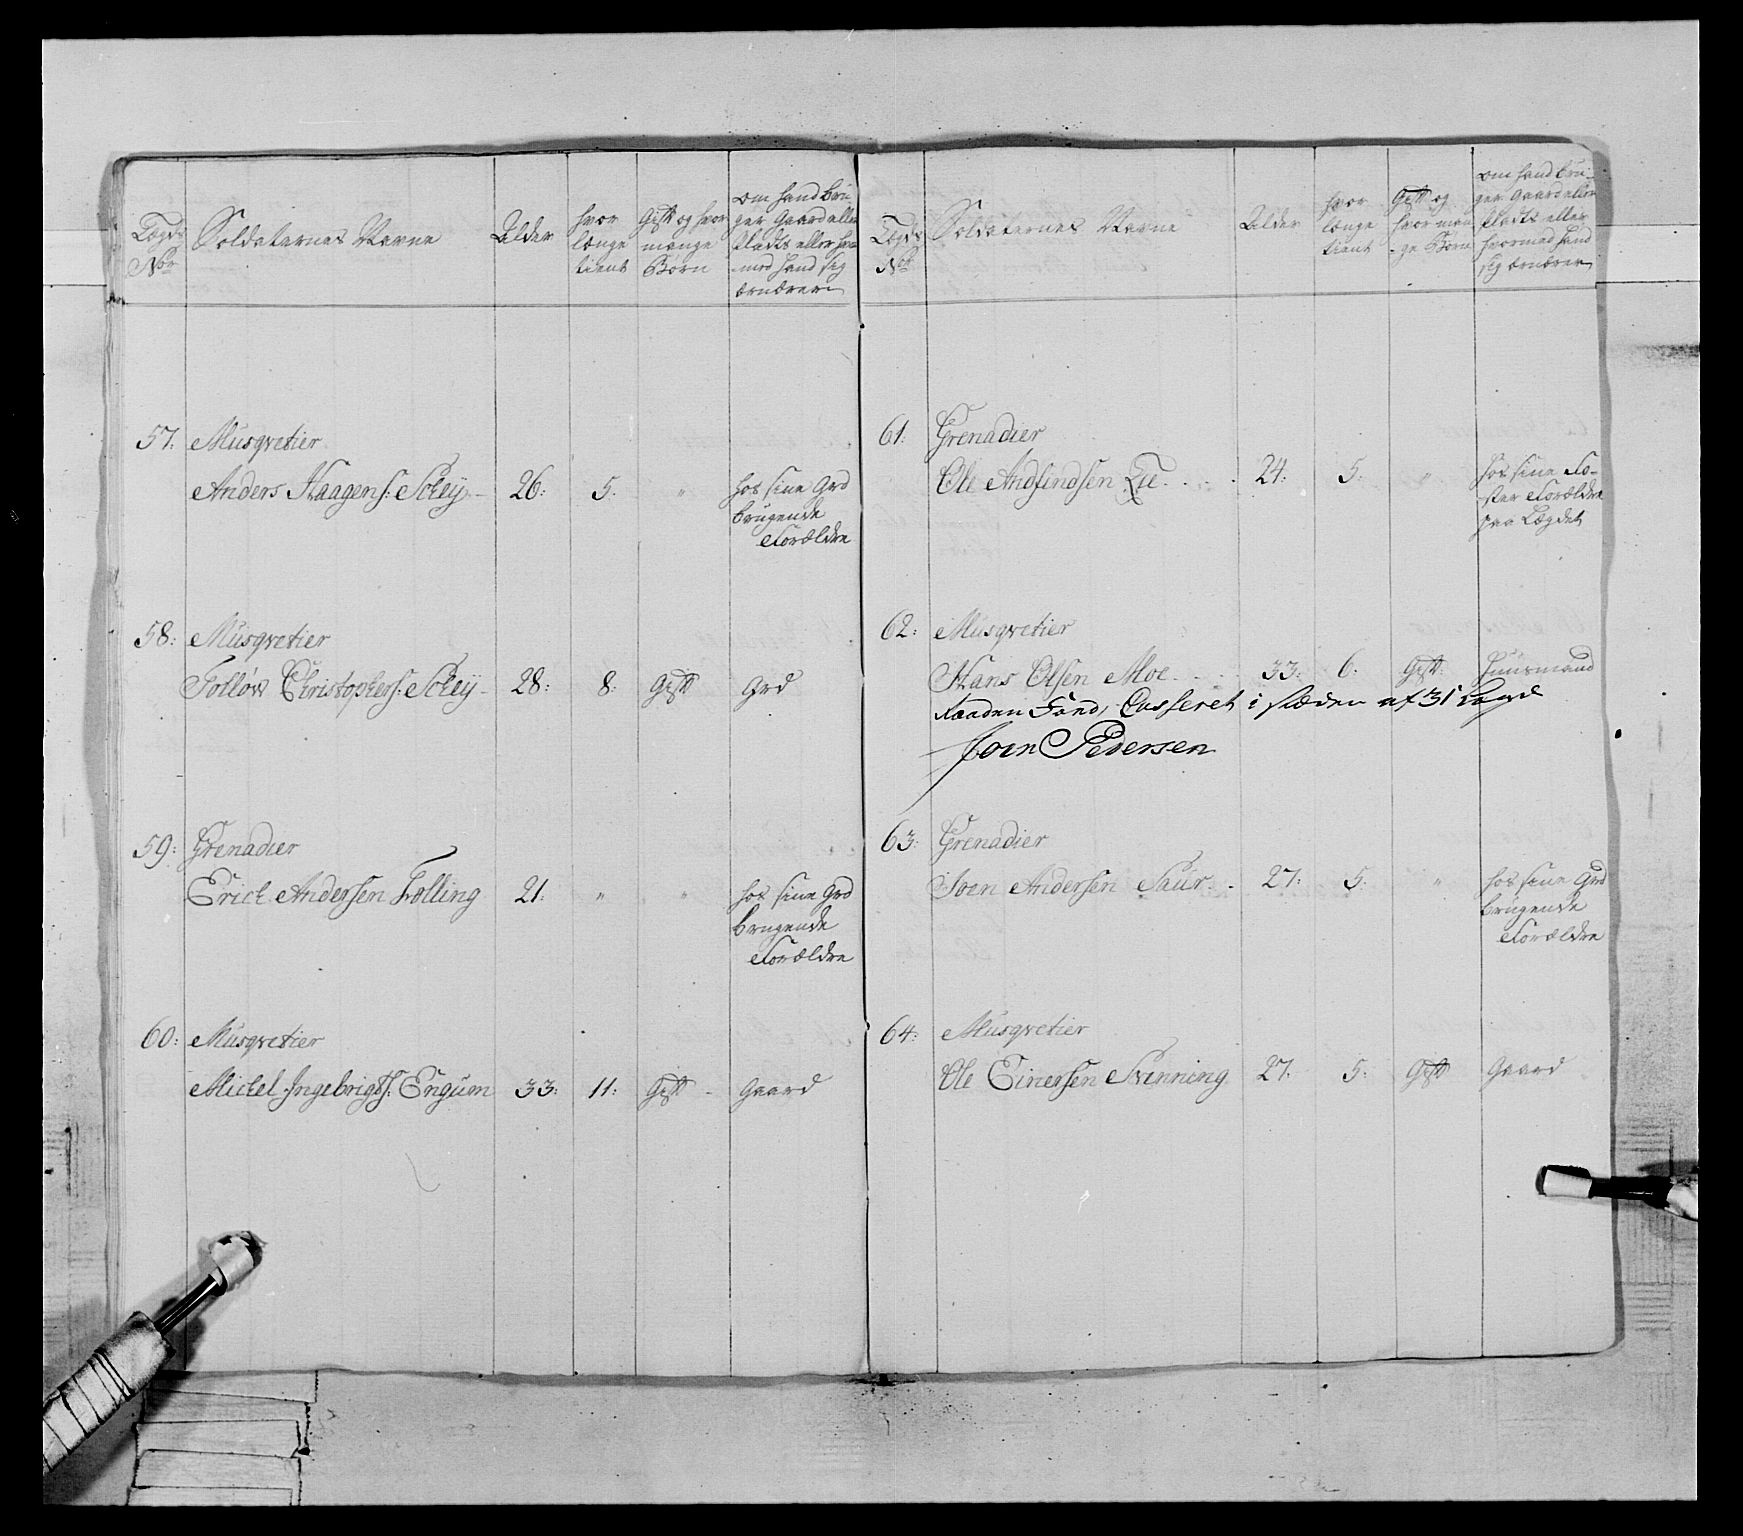 Lægds No Soldaternes Navne Alder hvor længe tient Gift og hvor mange Børn om hand bruger Gaard eller Plads eller hvormed hand sig ernærer
57: Musqvetier
Anders Haagens: Schey 26: 5. " hos sine Grd
brugende
Forældre
58: Musqvetier
Tolløv Christophers: Schey 28: 8: Gift Grd
59: Grenadier
Erich Andersen Tolling 21: " " hos sine Grd
brugende
Forældre
60: Musqvetier
Michel Ingebrigts: Engum 33: 11: Gift Gaard
Lægds No Soldaternes Navne Alder hvor længe tient Gift og hvor mange Børn om hand bruger Gaard eller Plads eller hvormed hand sig ernærer
61: Grenadier
Ole Andfindsen Lie 24: 5: " hos sine Fo-
ster Forældre
paa Lægdet
62: Musqvetier
Hans Olsen Moe 33: 6: Gift Huusmand
Casseret i stæden af 31 Lægd
Joen Pedersen
63: Grenadier
Joen Andersen Saur 27: 5: " hos sine Grd
brugende
Forældre
64: Musqvetier
Ole Einersen Svinning 27: 5: Gift Gaard